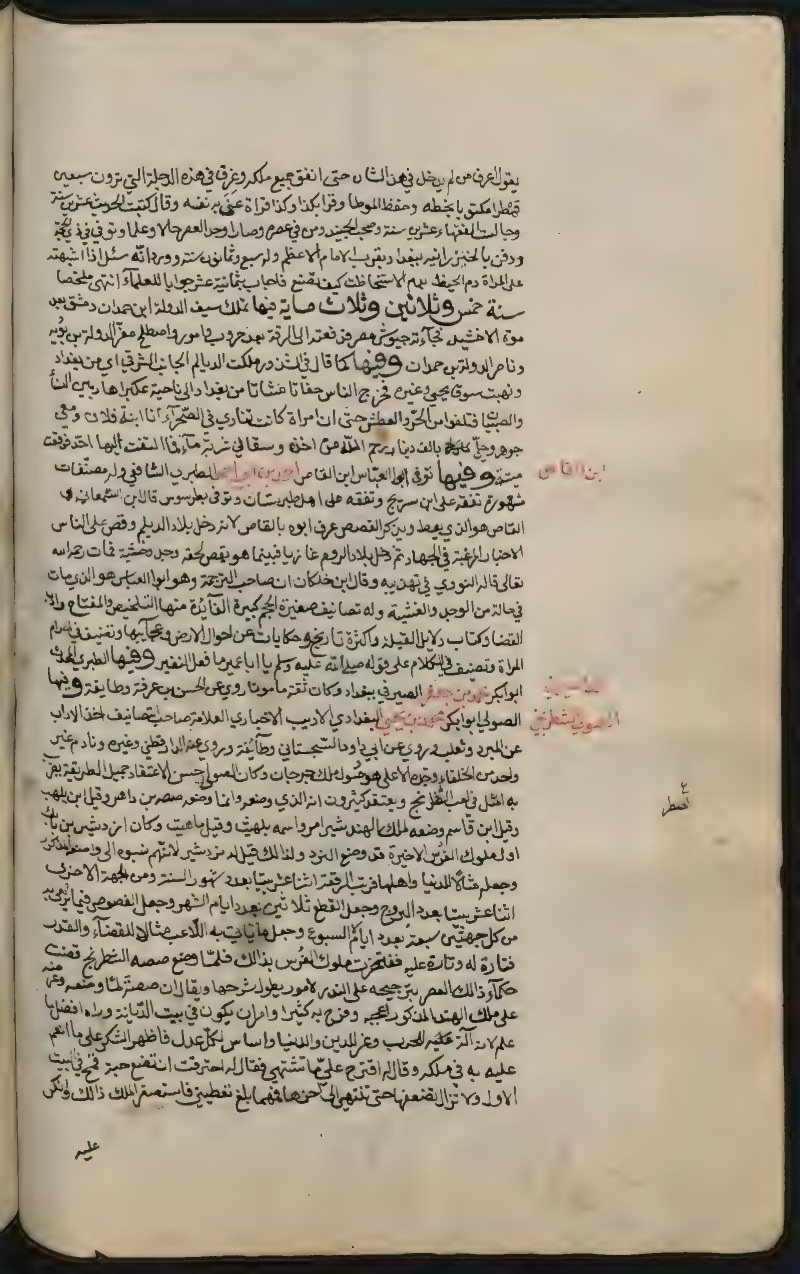 يقول لا عرف من لم يدخل في هذا الشان حتى انفق جميع ملكه وغرق في هذه الدجلة التي ترون سبعين
قمطرا مكتوبا بخطه وحفظ الموطا وقرا بكذا وكذا قراة عنى به نفسه وقال كتبت الحديث عشرين سنة
وجالست الفقهاء عشرين سنة وصحب الجنيد ومن في عصره وصار اوحد العصر حالا وعلما وتوفي في ذي الحجة
ودفن بالخيزرانية ببغداد بقرب الامام الاعظم وله سبع وثمانون سنة وورد انه سئل اذا اشتبه
على المراة دم الحيض بدم الاستحاضة كيف تصنع فاجاب بثمانية عشر جوابا للعلماء انتهى ملخصا
سنة خمس وثلاثين وثلاث ماية فيها تملك سيف الدولة ابن حمدان دمشق بعد
موت الاخشيد فجاءته جيوش مصر فدفعته الى الرقة بعد حروب وامور واصطلح معز الدولة بن بويه
وناصر الدولة بن حمدان وفيها كما قال في الشذور ملكت الديالم الجانب الشرقي اي من بغداد
ونهبت سوق يحيى وغيره فخرج الناس حفاتا مشاتا من بغداد الى ناحية عكبرا هاربين النسا
والصبيان فتلفوا من الحر والعطش حتى ان امراة كانت تنادي في الصحراء انا ابنة فلان ومعي
جوهر وحلي بالف دينار رحم الله من اخذه وسقاني شربة ماء فما التفت اليها احد فوقعت
ميتة وفيها توفي ابو العباس ابن القاص احمد بن ابي احمد الطبري الشافعي وله مصنفات
مشهورة تفقه على ابن سريج وتفقه عليه اهل طبرستان وتوفي بطرسوس قال ابن السمعاني
القاص هو الذي يعظ ويذكر القصص عرف ابوه بالقاص لانه دخل بلاد الديلم وقص على الناس
الاخبار المرغبة في الجهاد ثم دخل بلاد الروم غازيا فبينما هو يقص لحقه وجد وخشية فمات رحمه الله
تعالى قاله النووي في تهذيبه وقال ابن خلكان ان صاحب الترجمة وهو ابو العباس هو الذي مات
في حالة من الوجد والغشية وله تصانيف صغيرة الحجم كبيرة الفائدة منها التلخيص والمفتاح وادب
القضا وكتاب دلايل القبلة واكثره تاريخ وحكايات عن احوال الارض وعجايبها وتصنيف في احرام
المراة وتصنيف في الكلام على قوله صلى الله عليه وسلم يا ابا عمير ما فعل النغير وفيها الطبري المحدث
ابو بكر محمد بن جعفر الصيرفي ببغداد وكان ثقة مامونا روى عن الحسن بن عرفة وطايفة وفيها
الصولي ابو بكر محمد بن يحيى البغدادي الاديب الاخباري العلامة صاحب التصانيف اخذ الاداب
عن المبرد وثعلب وروى عن ابي داود السجستاني وطائفة وروى عنه الدارقطني وغيره ونادم غير
واحد من الخلفاء وجده الاعلى هو صول ملك جرجان وكان الصولي حسن الاعتقاد جميل الطريقة يضرب
به المثل في لعب الشطرنج ويعتقد كثيرون انه الذي وضعه وانما وضعه صصه بن داهر وقيل ابن بلهب
وقيل ابن قاسم وضعه لملك الهند شيرام واسمه بلهيث وقيل ماهيت وكان ازدشير بن بابك
اول ملوك الفرس الاخيرة قد وضع النرد ولذالك قيل له نردشير لانهم نسبوه الى واضعه المذكور
وجعله مثالا للدنيا واهلها فرتب الرقعة اثنا عشر بيتا بعدد شهور السنة ومن الجهة الاخرى
اثنا عشر بيتا بعدد البروج وجعل القطع ثلاثين بعدد ايام الشهر وجعل الفصوص فيما يرمى به
من كل جهتين سبعة بعدد ايام السبوع وجعل ما ياتي به اللاعب مثالا للقضآء والقدر
فتارة له وتارة عليه ففتخرت ملوك الفرس بذالك فلما وضع صصه الشطرنج قضت
حكمآء ذالك العصر بترجيحه على النرد لامور يطول شرحها ويقال ان صصة لما وضعه وعرضه
على ملك الهند المذكور اعجبه وفرح به كثيرا وامر ان يكون في بيت الديانة وراه افضل ما
علم لانه آلة للحرب وعز للدين والدنيا واساس لكل عدل فاظهر الشكر على ما انعم
عليه به في ملكه وقال له اقترح علي ما تشتهي فقال له اقترحت ان تضع حبة قمح في البيت
الاول ولا تزال تضعفها حتى تنتهي الى اخرها فمهما بلغ تعطيني فاستصغر الملك ذالك وانكر
عليه
ابن القاص
الصولي الشطرنجي